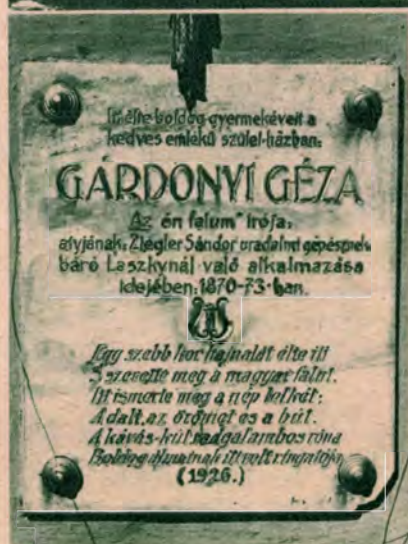 Itt élte boldog gyermekéveit a
kedves emlékű szülei-házban:
GÁRDONYI GÉZA
Az én falum" írója:
atyjának: Ziegler Sándor uradalmi gépésznek
báró Laszkynál való alkalmazása
idejében: 1870-73-ban.
Egy szebb kor hajnalát élte itt
S szerette meg a magyar falut.
Itt ismerte meg a nép lelkét:
A dalt, az örömet és a bút.
A kávás-kút vadgalambos róna
Boldog álmainak itt volt ringatója
(1926.)